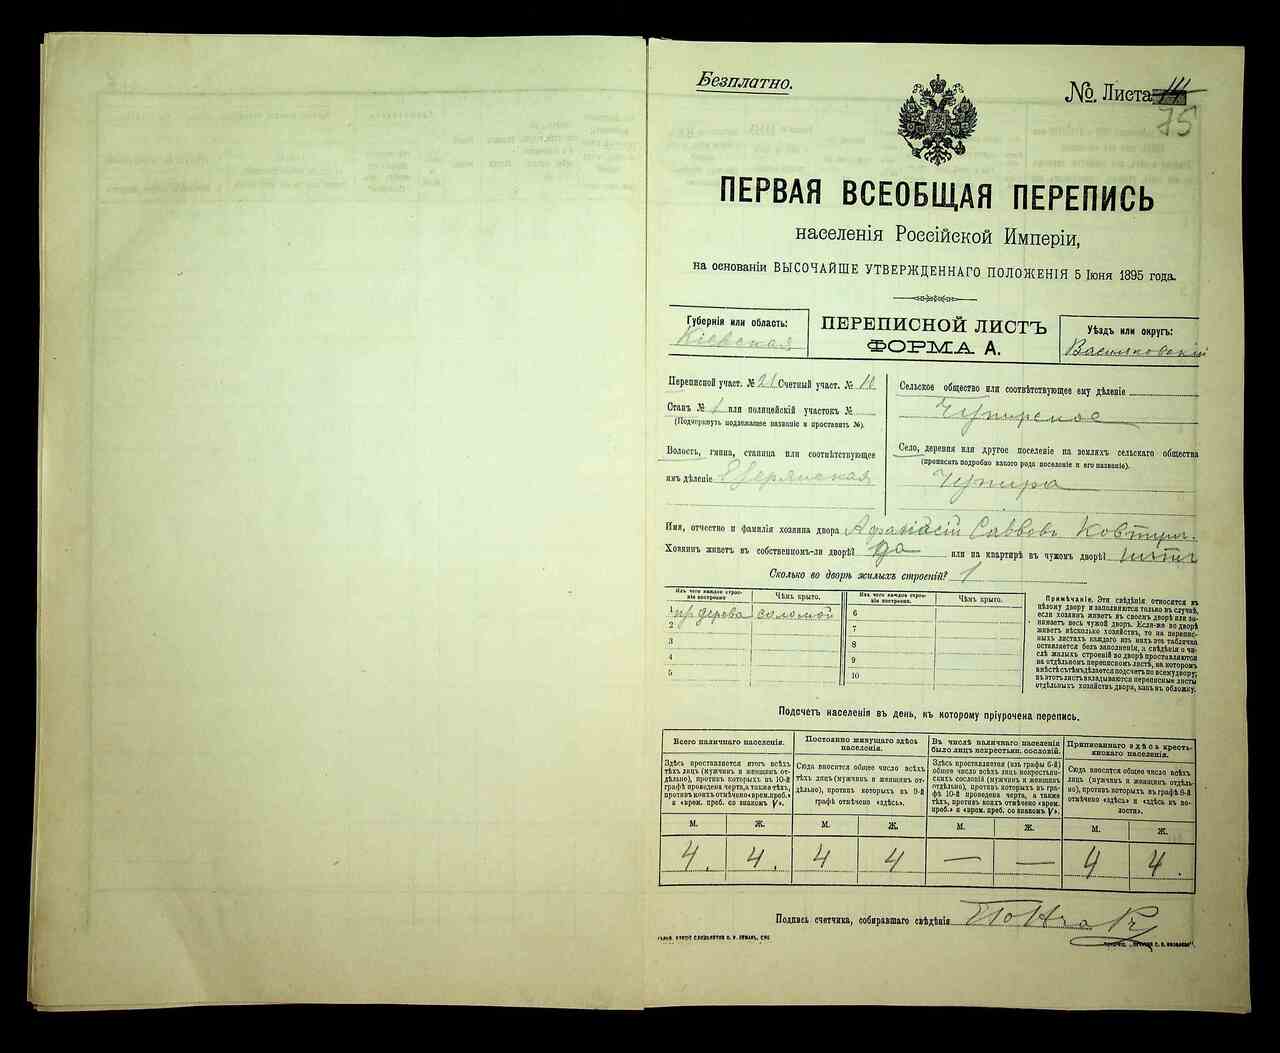 Безплатно.
№ Листа
75
ПЕРВАЯ ВСЕОБЩАЯ ПЕРЕПИСЬ
населенія Россійской Имперіи,
на основаніи ВЫСОЧАЙШЕ УТВЕРЖДЕННАГО ПОЛОЖЕНІЯ 5 Іюня 1895 года.
Губернія или область:
Кіевская
ПЕРЕПИСНОЙ ЛИСТЪ
ФОРМА А.
Уѣздъ или округъ:
Васильковскій
Переписной участ. № 21 Счетный участ. № 10
Станъ № 1 или полицейскій участокъ №
(Подчеркнуть подлежащее названіе и проставить №).
Волость, гмина, станица или соотвѣтствующее
имъ дѣленіе
Сельское общество или соотвѣтствующее ему дѣленіе
Чупирское
Село, деревня или другое поселеніе на земляхъ сельскаго общества
(прописать подробно какого рода поселеніе и его названіе).
Чупира
Имя, отчество и фамилія хозяина двора Афанасій Саввовъ
Хозяинъ живетъ въ собственномъ-ли дворѣ? да или на квартирѣ въ чужомъ дворѣ?
Сколько во дворѣ жилыхъ строеній? 1
Изъ чего каждое строеніе построено. Чѣмъ крыто. Изъ чего каждое строеніе построено. Чѣмъ крыто.
1 дерева соломой 6
2 7
3 8
4 9
5 10
Примѣчаніе. Эти свѣдѣнія относятся къ
цѣлому двору и заполняются только въ случаѣ,
если хозяинъ живетъ въ своемъ дворѣ или занимаетъ
весь чужой дворъ. Если-же во дворѣ
живетъ нѣсколько хозяйствъ, то на переписныхъ
листахъ каждаго изъ нихъ эта табличка
оставляется безъ заполненія, а свѣдѣнія о числѣ
жилыхъ строеній во дворѣ проставляются
на отдѣльномъ переписномъ листѣ, на которомъ
вмѣстѣ съ тѣмъ дѣлается подсчетъ по всему двору;
въ этотъ листъ вкладываются переписные листы
отдѣльныхъ хозяйствъ двора, какъ въ обложку.
Подсчетъ населенія въ день, къ которому пріурочена перепись.
Всего наличнаго населенія.
Здѣсь проставляется итогъ всѣхъ
тѣхъ лицъ (мужчинъ и женщинъ отдѣльно),
противъ которыхъ въ 10-й
графѣ проведена черта, а также тѣхъ,
противъ коихъ отмѣчено «врем. преб.»
и «врем. преб. со знакомъ V».
Постоянно живущаго здѣсь
населенія.
Сюда вносится общее число всѣхъ
тѣхъ лицъ (мужчинъ и женщинъ отдѣльно),
противъ которыхъ въ 9-й
графѣ отмѣчено «здѣсь».
Въ числѣ наличнаго населенія
было лицъ некрестьян. сословій.
Здѣсь проставляется (изъ графы 6-й)
общее число всѣхъ лицъ некрестьянскихъ
сословій (мужчинъ и женщинъ
отдѣльно), противъ которыхъ въ графѣ
10-й проведена черта, а также
тѣхъ, противъ коихъ отмѣчено «врем.
преб.» и «врем. преб. со знакомъ V».
Приписаннаго здѣсь крестьянскаго
населенія.
Сюда вносится общее число всѣхъ
лицъ (мужчинъ и женщинъ отдѣльно),
противъ которыхъ въ графѣ 8-й
отмѣчено «здѣсь» и «здѣсь въ волости».
М. Ж. М. Ж. М. Ж. М. Ж.
4. 4. 4 4 — — 4 4.
Подпись счетчика, собиравшаго свѣдѣнія